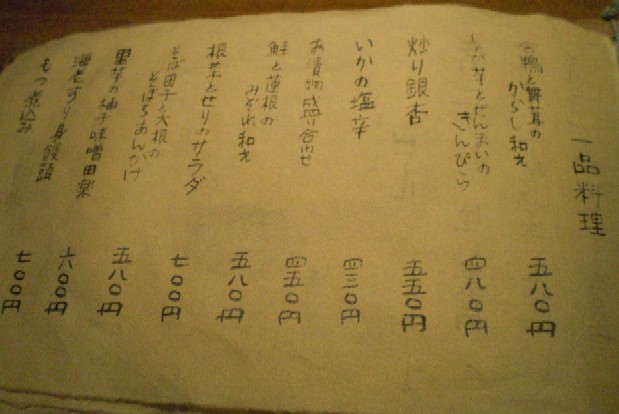 一品料理
合鴨と舞茸の
からし和え
五八〇円
じゃが芋とぜんまいの
きんぴら
四八〇円
炒り銀杏
五五〇円
いかの塩辛
四三〇円
お漬物盛り合わせ
四五〇円
鮭と蓮根の
みぞれ和え
五八〇円
根菜とせりのサラダ
七〇〇円
そば団子と大根の
そぼろあんかけ
五八〇円
里芋の柚子味噌田楽
六〇〇円
海老すり身饅頭
七〇〇円
もつ煮込み